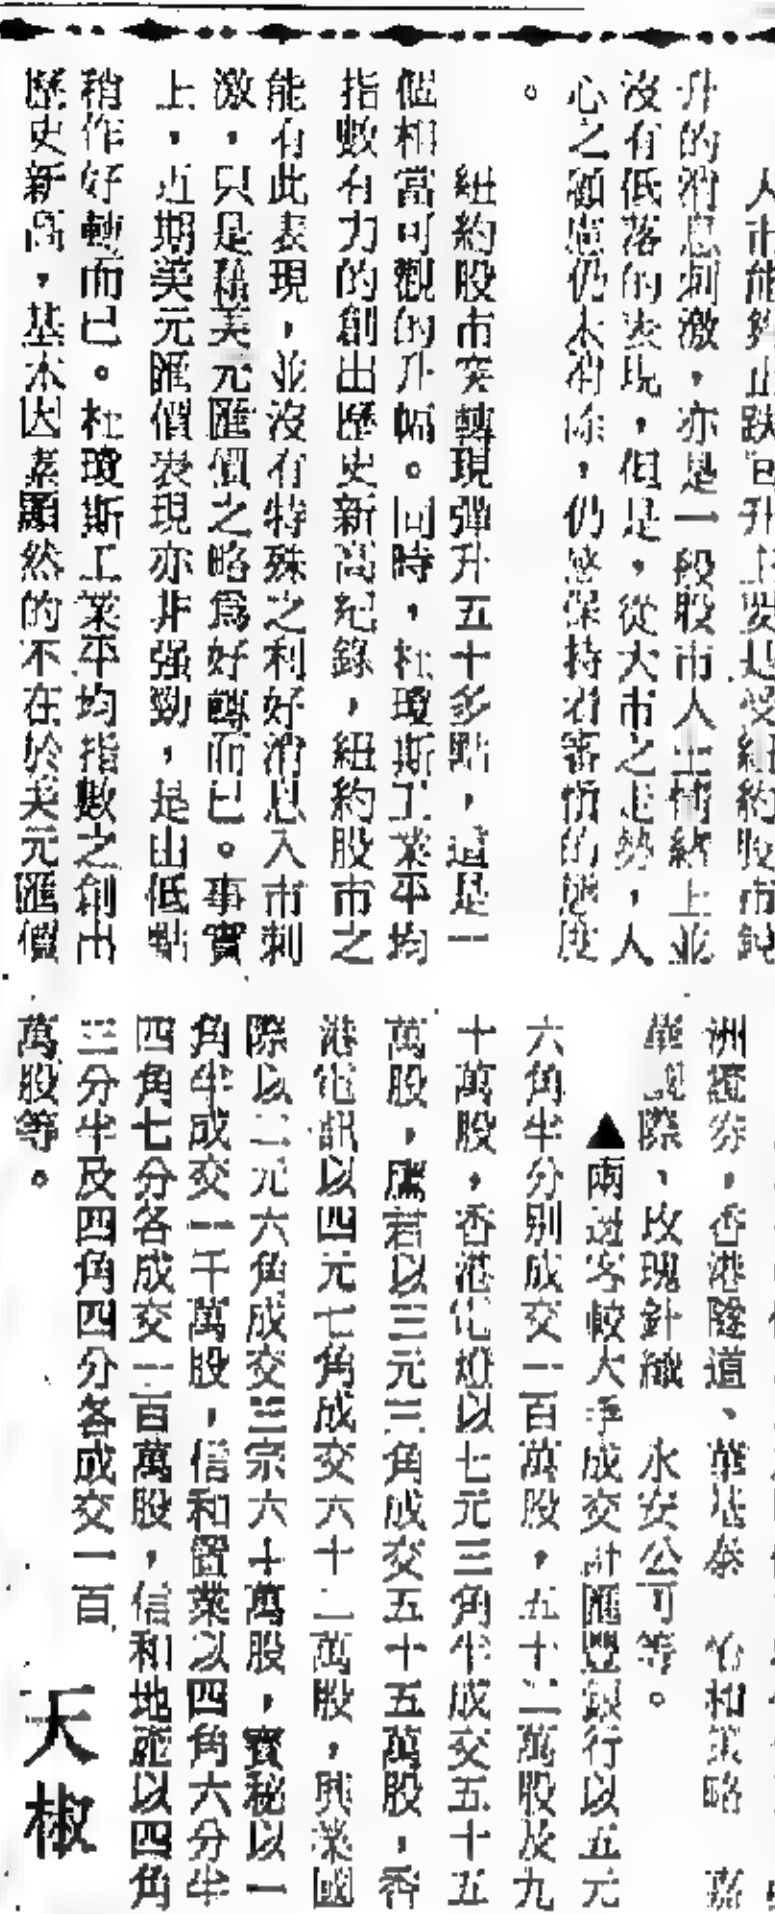 人市能夠止跌回升主要是受紐約股市銳
升的消息刺激，亦是一般股市人士情緒上並
沒有低落的表現，但是，從大市之走勢，人
心之顧慮仍未消除，仍然保持着審慎的態度
。
紐約股市突轉現彈升五十多點，這是一
個相當可觀的升幅。同時，杜瓊斯工業平均
指數有力的創出歷史新高紀錄，紐約股市之
能有此表現，並沒有特殊之利好消息入市刺
激，只是藉美元匯價之略爲好轉而已。事實
上，近期美元匯價表現亦非强勁，是由低點
稍作好轉而已。杜瓊斯工業平均指數之創出
歷史新高，基本因素顯然的不在於美元匯價
洲證券，香港隧道、華基泰 怡和策略 嘉
華國際、玫瑰針織 永安公司等。
▲兩邊客較大手成交計匯豐銀行以五元
六角半分別成交一百萬股，五十二萬股及九
十萬股，香港電燈以七元三角半成交五十五
萬股，鷹君以三元三角成交五十五萬股，香
港電訊以四元七角成交六十二萬股，興業國
際以二元六角成交三宗六十萬股，寶秘以一
角半成交一千萬股，信和置業以四角六分半
四角七分各成交一百萬股，信和地產以四角
三分半及四角四分各成交一百
萬股等。
天椒